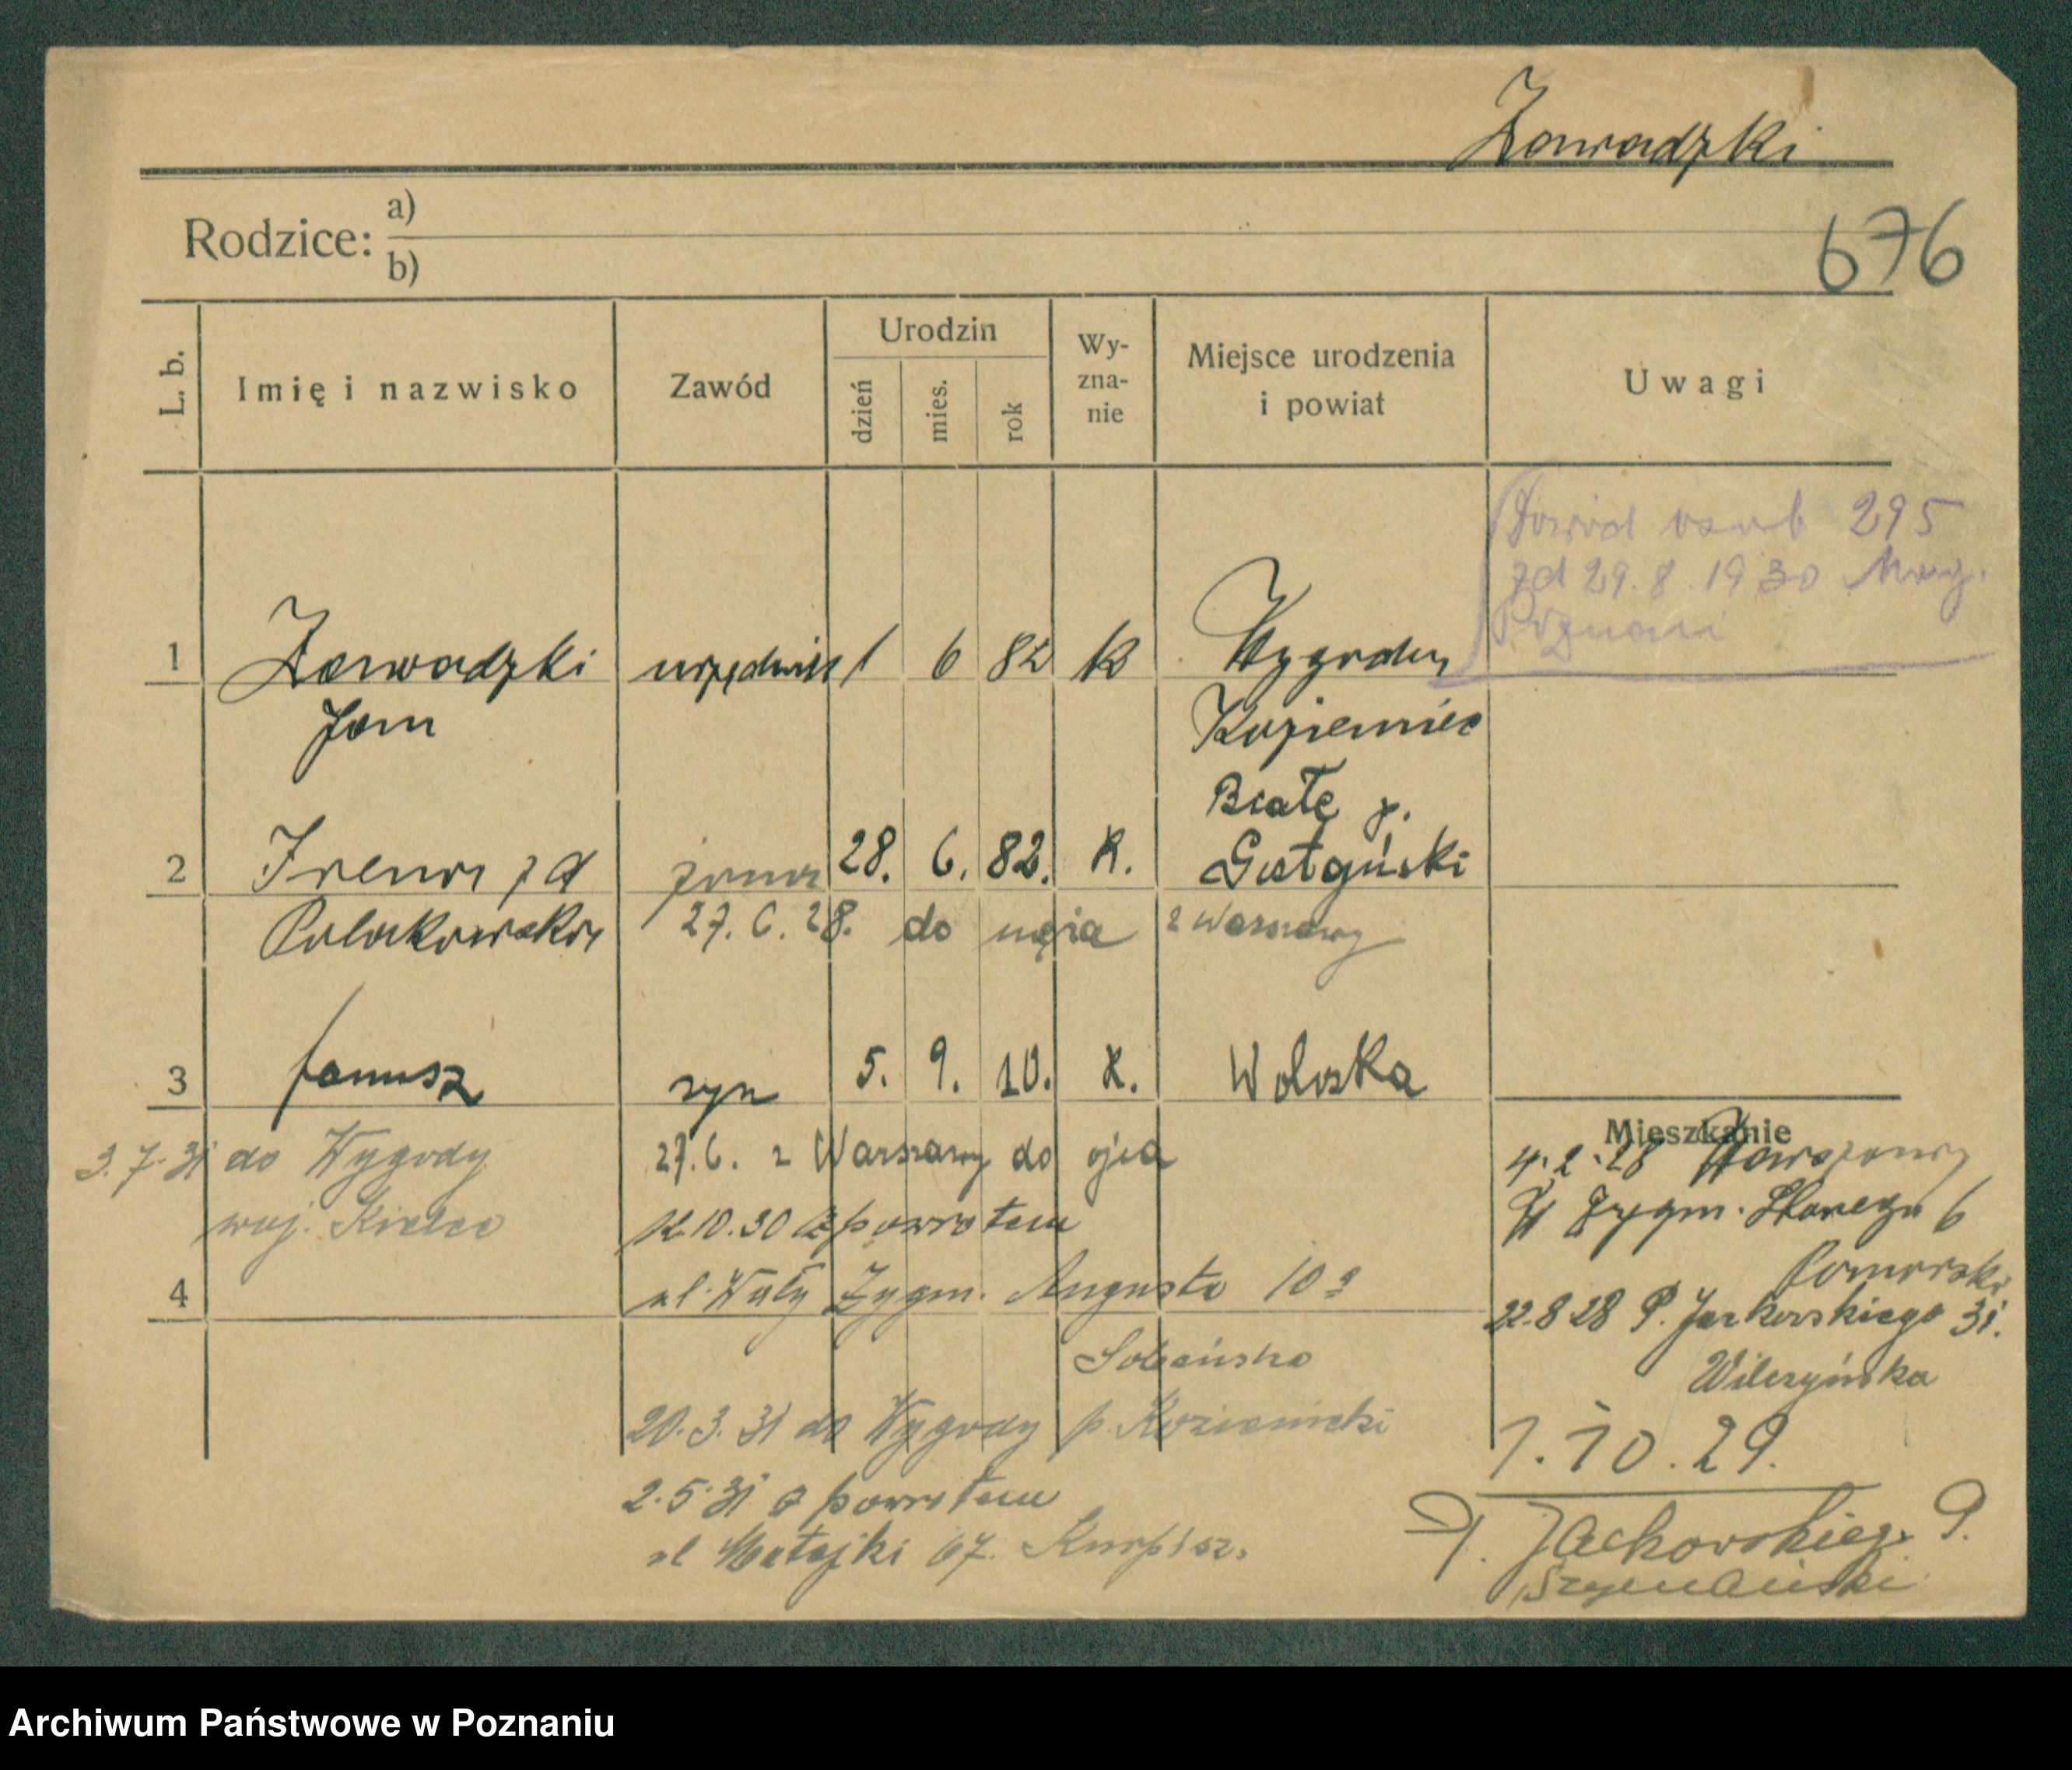 Zawadzki
Rodzice: a)
b)
676
L. b.
Imię i nazwisko
Zawód
Urodzin
dzień
mies.
rok
Wy-
zna-
nie
Miejsce urodzenia
i powiat
Uwagi
Dowód osob 295
zd 29.8.1930 Mag.
Poznań
1 Zawadzki urzędnik 1 6 82 k Wygoda
Jan Kozienice
Białe p.
2 Irena zd żona 28. 6. 82. K. Gostyński
Polakowska 27.6.28. do męża z Warszawy
3 Janusz syn 5. 9. 10. K. Wolska
Mieszkanie
3.7.31 do Wygody 27.6. z Warszawy do ojca
4.2.28 Warszawy
woj. Kielce 12.10.30 z powrotem
Zygm. Starego 6
Pomorska
4 ul. Wały Zygm. Augusta 10a
22.8.28 P. Jackowskiego 31.
Sobańska
Wilczyńska
20.3.31 do Wygody p. Kozienicki
1.10.29.
2.5.31 z powrotem
P. Jackowskiego 9.
ul Matejki 67.
Szymański
Archiwum Państwowe w Poznaniu